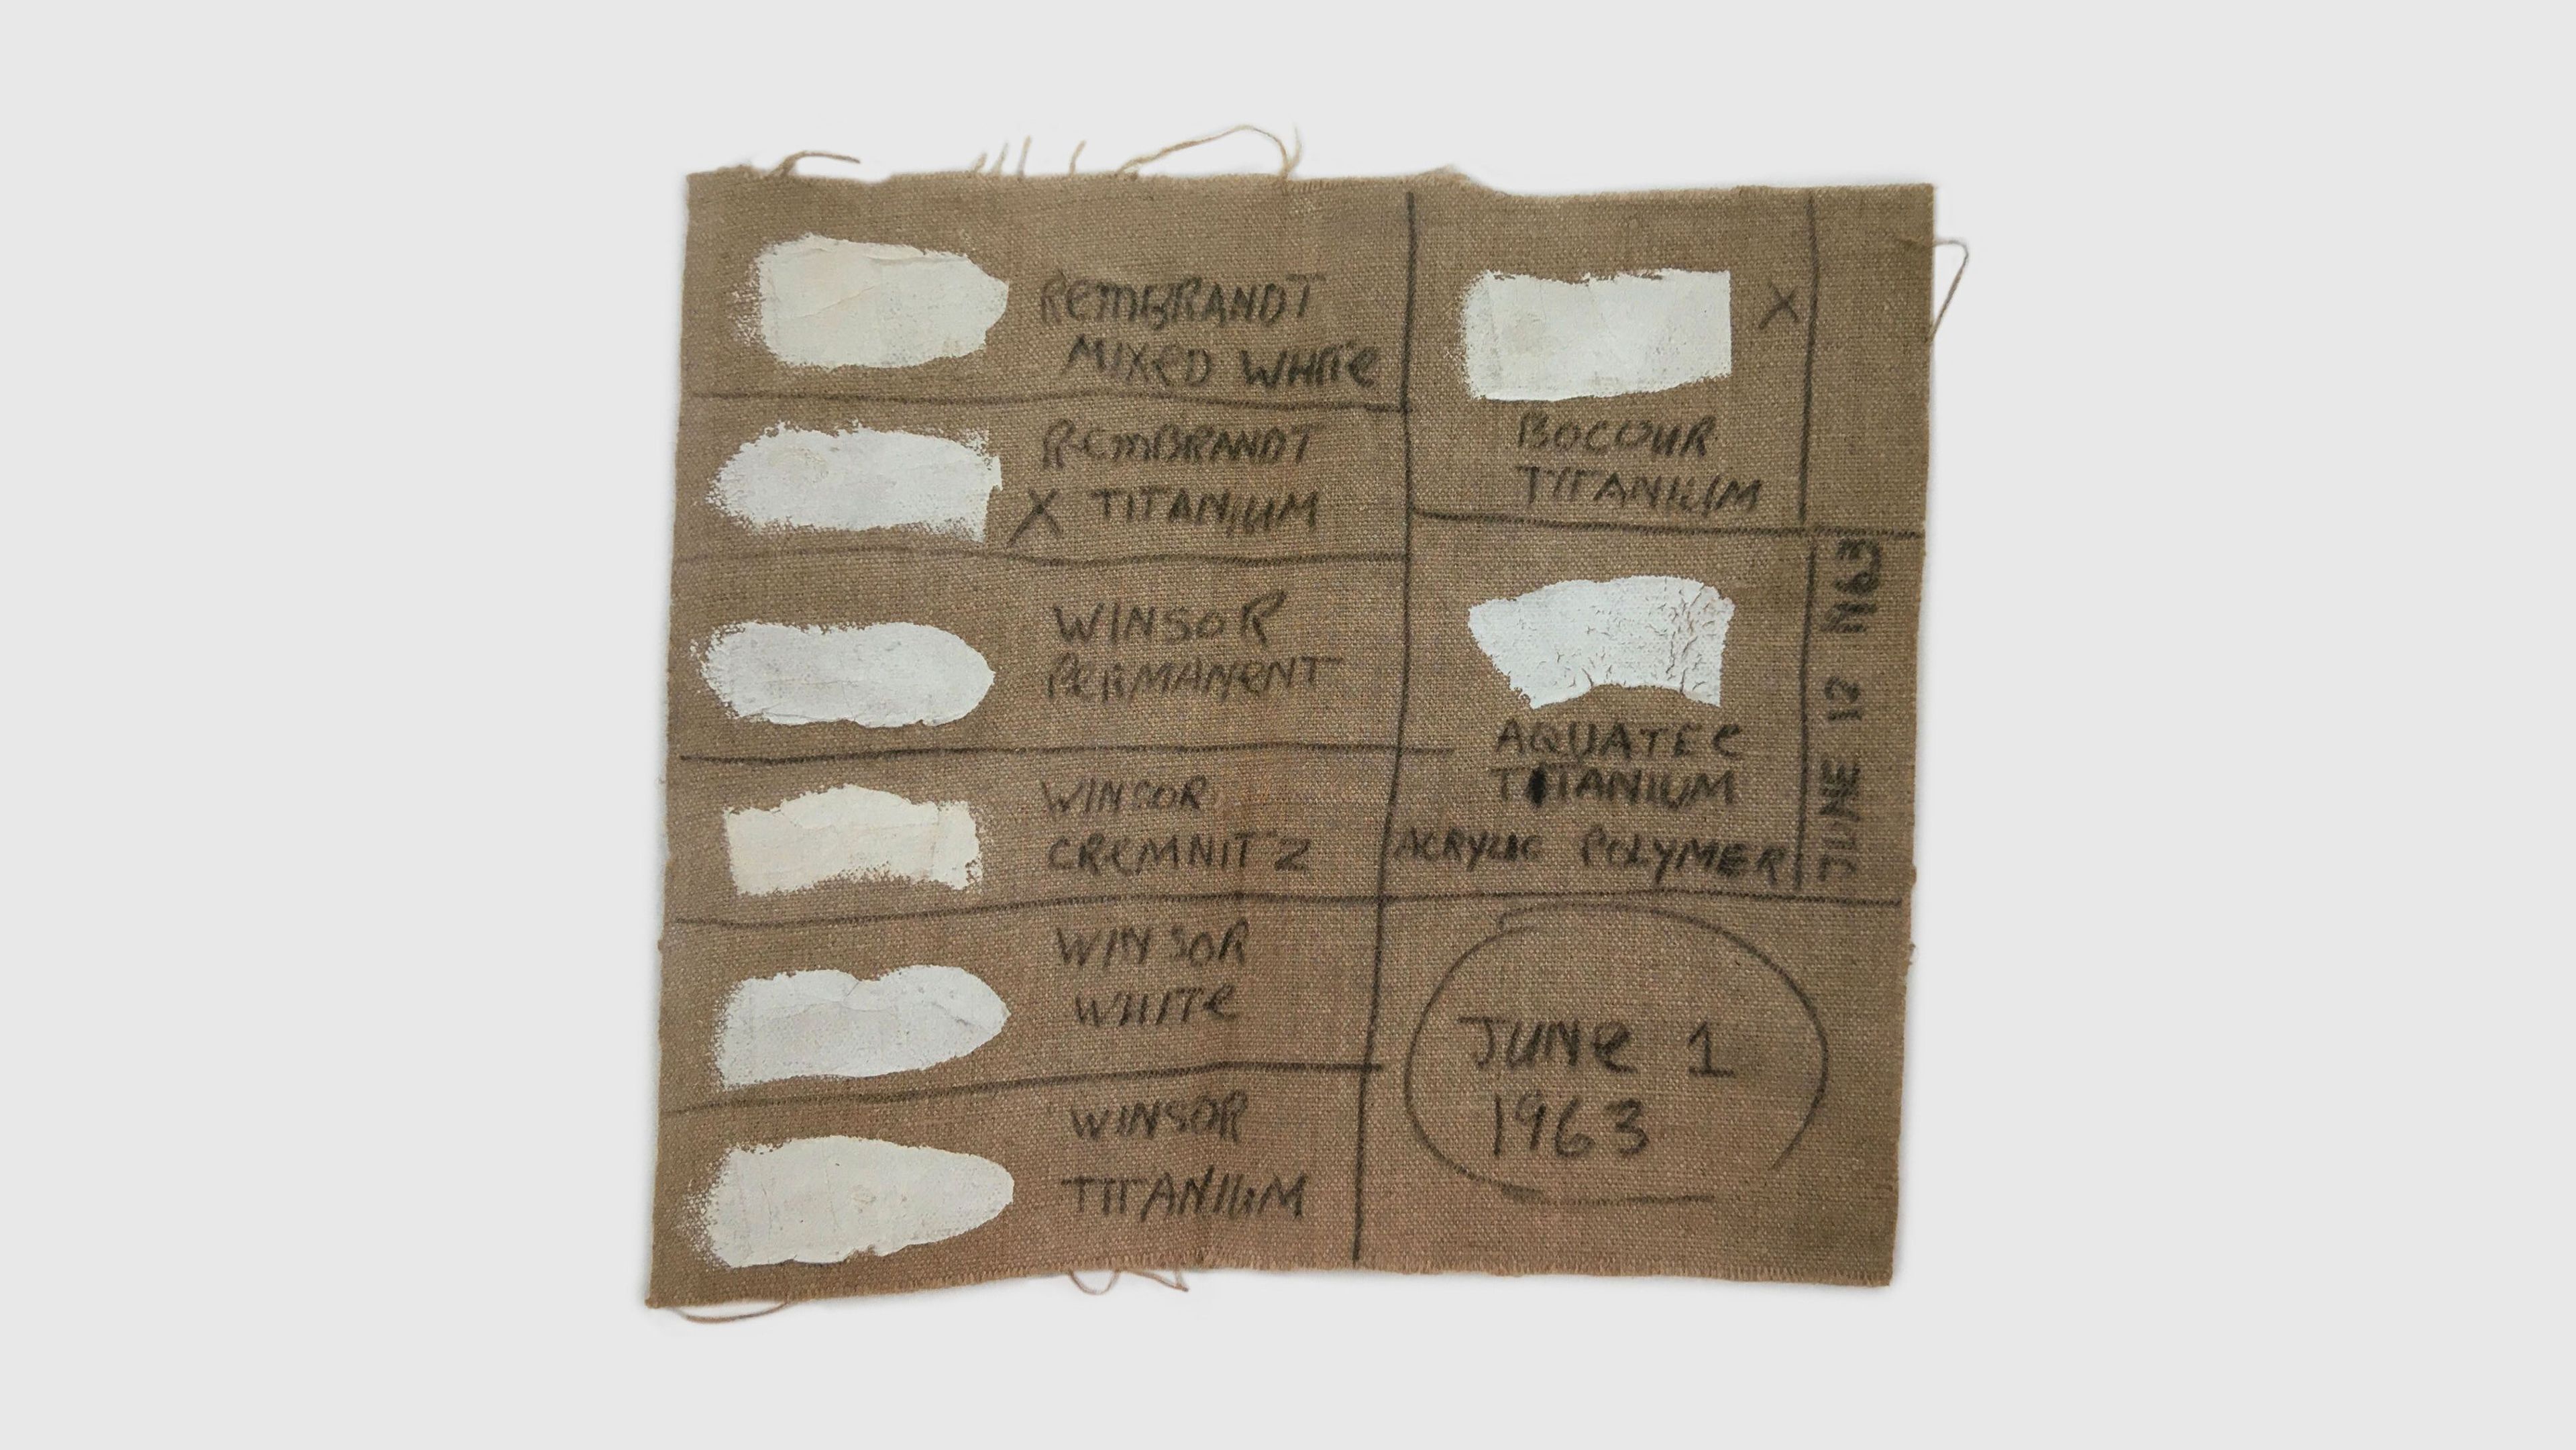 REMBRANDT
MIXED WHITE
REMBRANDT
X TITANIUM
WINSOR
PERMANENT
WINSOR
CREMNITZ
WINSOR
WHITE
WINSOR
TITANIUM
X
BOCOUR
TITANIUM
AQUATEC
TITANIUM
ACRYLIC POLYMER
JUNE 12 1963
JUNE 1
1963